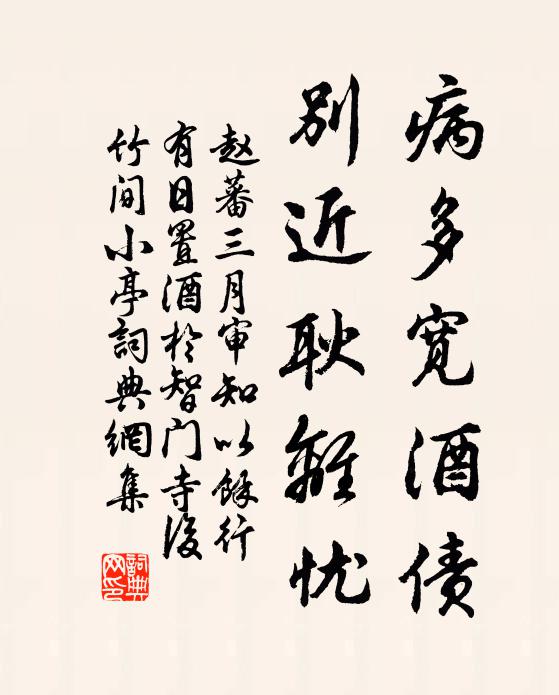 病多宽酒债
别近耿離忧
赵蕃三月审知以餘行
有日置酒於智门寺後
竹间小亭詞典網集
詞典
网印